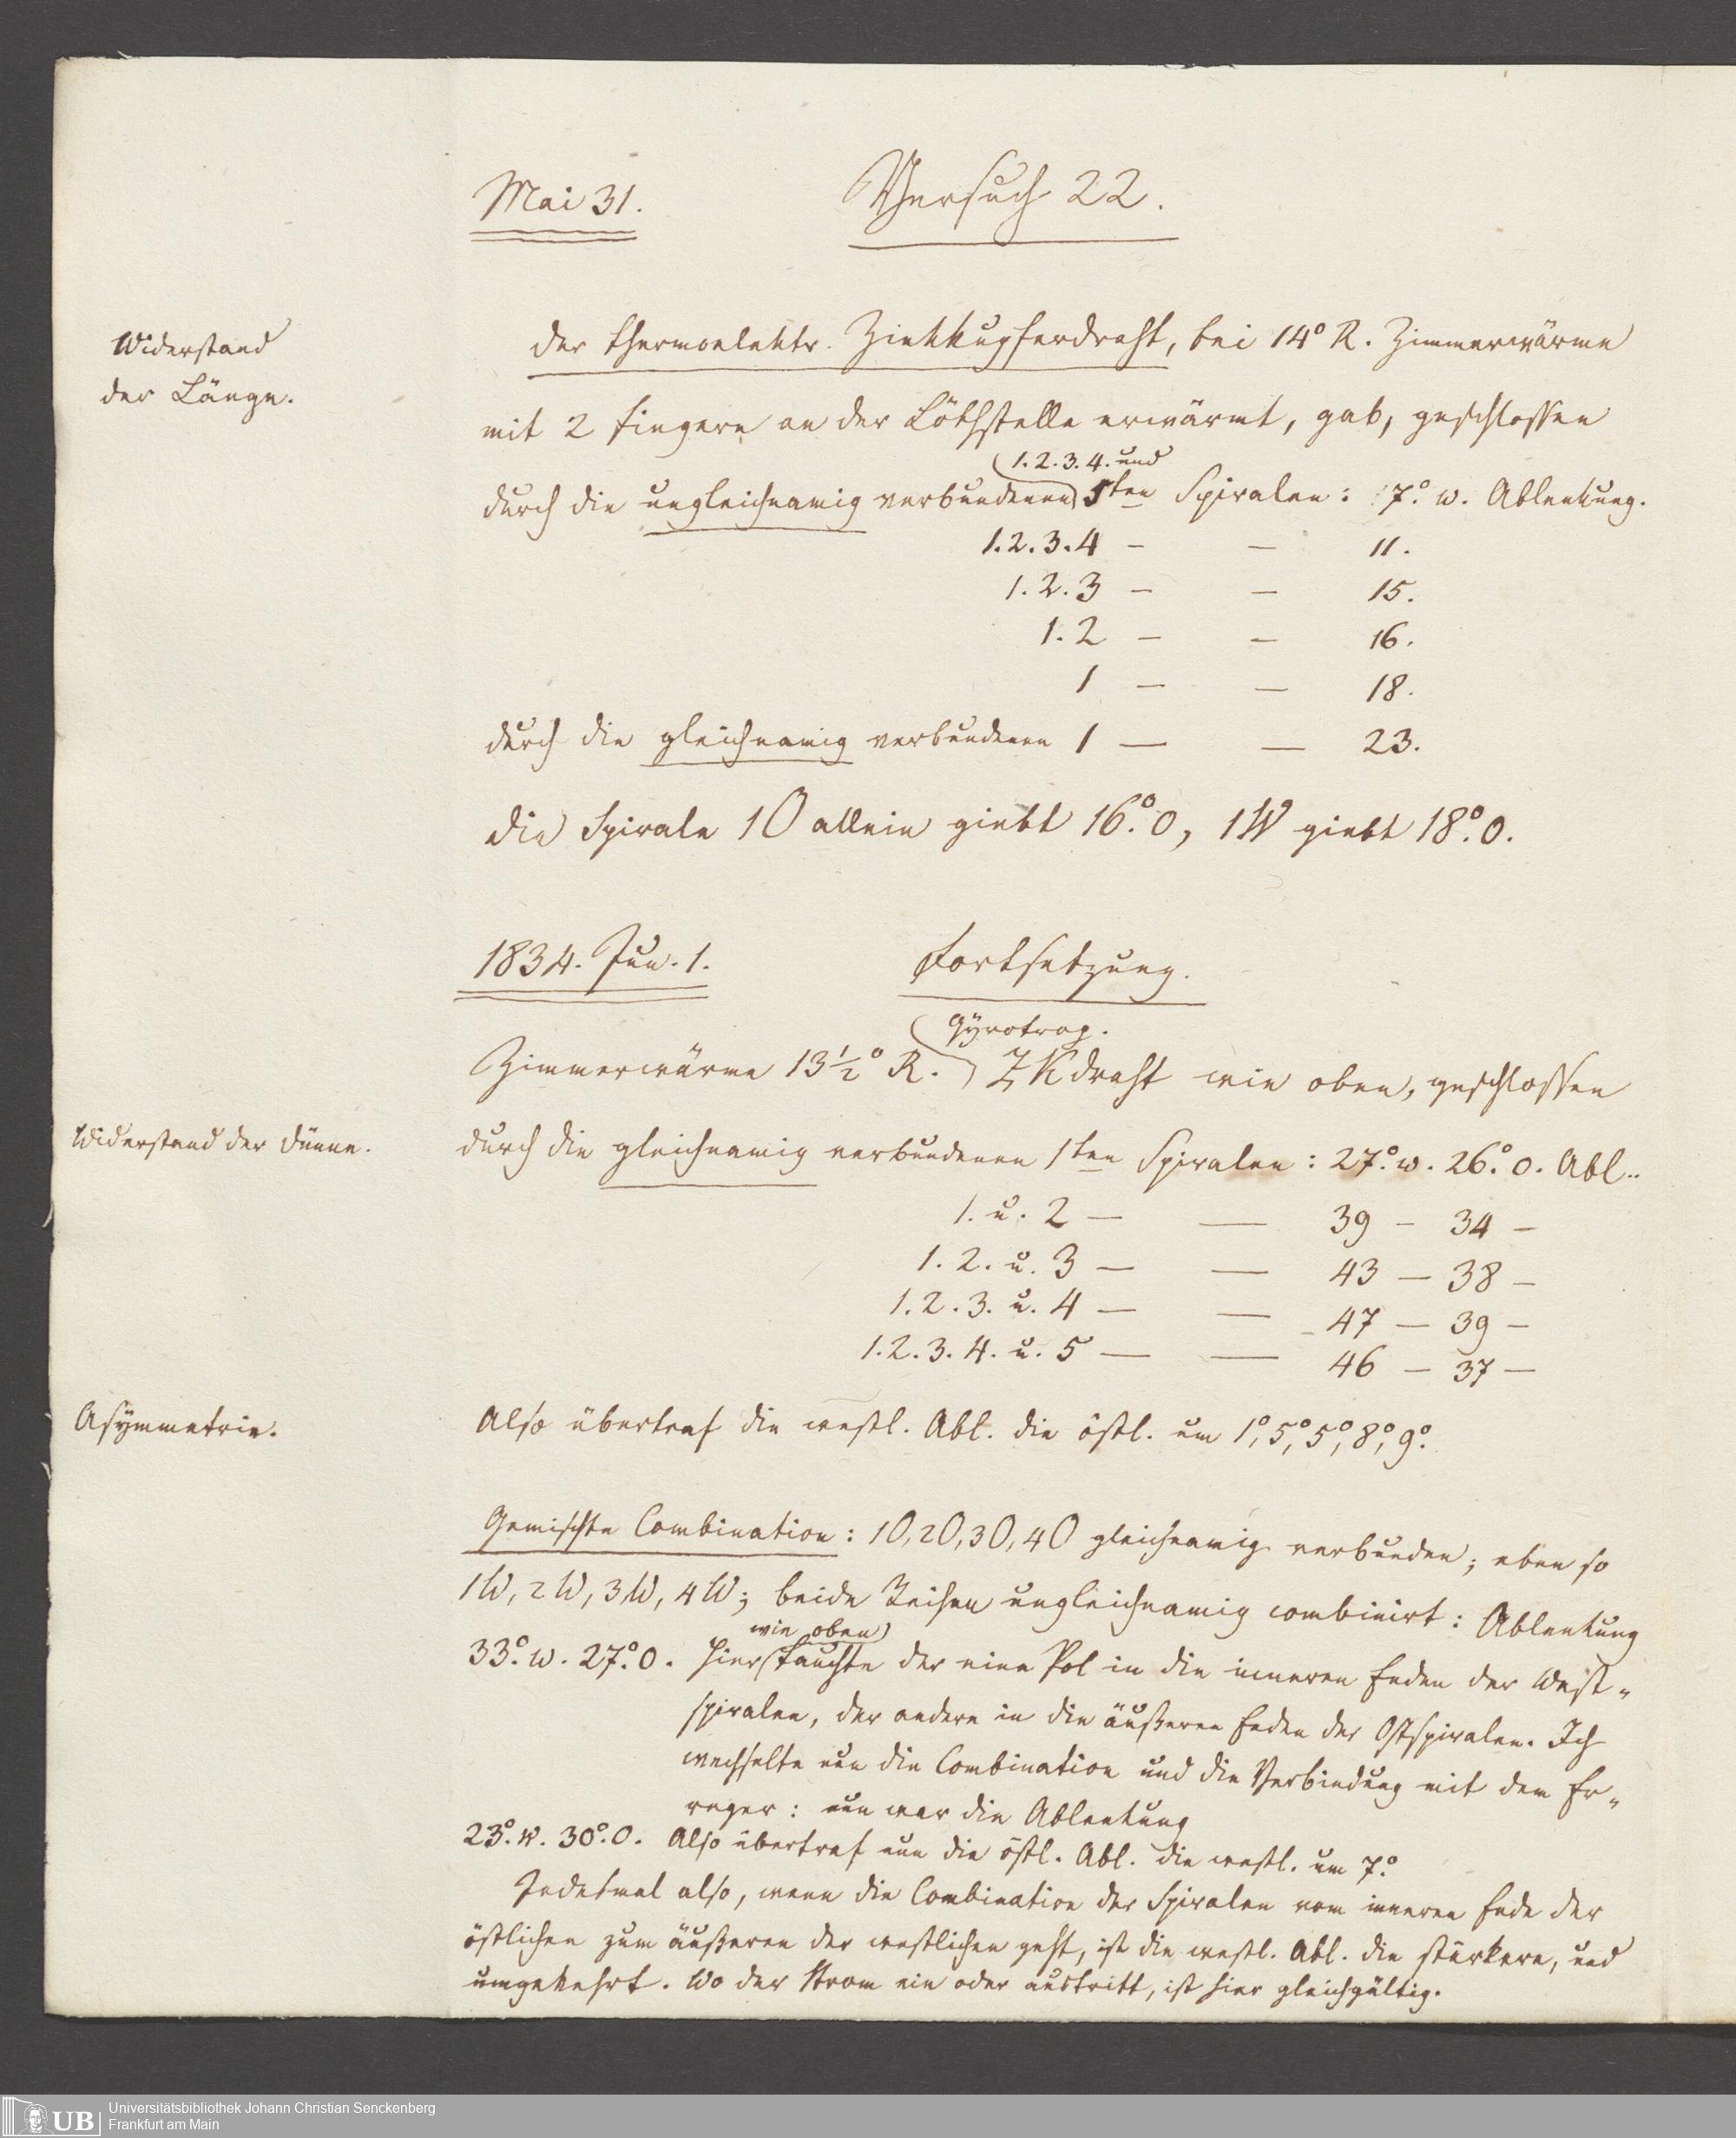 Mai 31. Versuch 22.
Widerstand
der Länge.
Der thermoelektr. Zinkkupferdraht, bei 14° R. Zimmerwärme
mit 2 Fingern an der Löthstelle erwärmt, gab, geschlossen
1.2.3.4. und
durch die ungleichnamig verbundenen 5ten Spiralen: 7.° w. Ablenkung.
1.2.3.4 — — 11.
1.2.3 — — 15.
1.2 — — 16.
1 — — 18.
durch die gleichnamig verbundenen 1 — — 23.
Die Spirale 1 O allein giebt 16.° O, 1 W giebt 18.° O.
1834. Jun. 1. Fortsetzung.
Gÿrotrop.
Zimmerwärme 13½° R. ZKdraht wie oben, geschlossen
Widerstand der Dünne.
durch die gleichnamig verbundenen 1ten Spiralen: 27.° w. 26.° o. Abl..
1. u. 2 — — 39 — 34 —
1. 2. u. 3 — — 43 — 38 —
1. 2. 3. u. 4 — — 47 — 39 —
1. 2. 3. 4. u. 5 — — 46 — 37 —
Asÿmmetrie.
Also übertraf die westl. Abl. die östl. um 1°, 5°, 5°, 8°, 9.°
Gemischte Combination: 1O, 2O, 3O, 4O gleichnamig verbunden; eben so
1W, 2W, 3W, 4W; beide Reihen ungleichnamig combinirt: Ablenkung
wie oben
33.° w. 27.° O. Hier tauchte der eine Pol in die inneren Enden der West„
spiralen, der andere in die äußeren Enden der Ostspiralen. Ich
wechselte nun die Combination und die Verbindung mit dem Er„
reger: nun war die Ablenkung
23.° w. 30.° O. Also übertraf nun die östl. Abl. die westl. um 7.°
Jedesmal also, wenn die Combination der Spiralen vom inneren Ende der
östlichen zum äußeren der westlichen geht, ist die westl. Abl. die stärkere, und
umgekehrt. Wo der Strom ein oder austritt, ist hier gleichgültig.
UB
Universitätsbibliothek Johann Christian Senckenberg
Frankfurt am Main